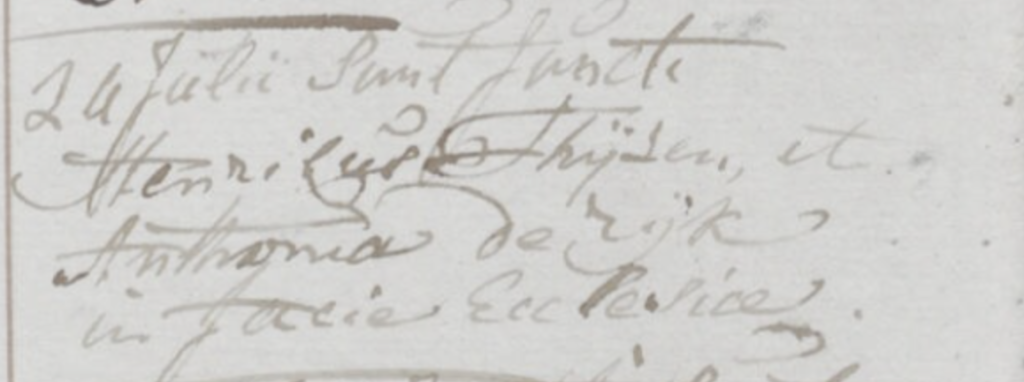 24 Julii Sunt Juncti
Henricus Thijsen, et
Anthonia de rijk
in facie Ecclesiae.